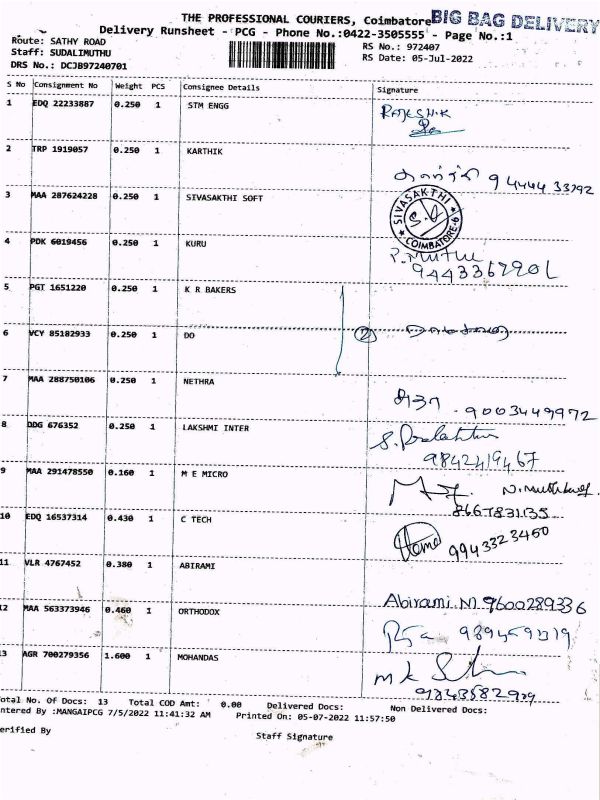 THE PROFESSIONAL COURIERS, Coimbatore BIG BAG DELIVERY
Delivery Runsheet - PCG - Phone No.:0422-3505555 - Page No.:1
Route: SATHY ROAD RS No.: 972407
Staff: SUDALIMUTHU RS Date: 05-Jul-2022
DRS No.: DCJB97240701
S No Consignment No Weight PCS Consignee Details Signature
1 EDQ 22233887 0.250 1 STM ENGG
2 TRP 1919057 0.250 1 KARTHIK
கார்த்தி
3 MAA 287624228 0.250 1 SIVASAKTHI SOFT
SIVASAKTHI
COIMBATORE-6
4 PDK 6019456 0.250 1 KURU
P. Muthu
5 PGT 1651220 0.250 1 K R BAKERS
6 VCY 85182933 0.250 1 DO
2
7 MAA 288750106 0.250 1 NETHRA
9003449972
8 DDG 676352 0.250 1 LAKSHMI INTER
9842419467
9 MAA 291478550 0.160 1 M E MICRO
8667831135
10 EDQ 16537314 0.430 1 C TECH
Hema 9943323460
11 VLR 4767452 0.380 1 ABIRAMI
Abirami.M 9600289336
12 MAA 563373946 0.460 1 ORTHODOX
13 AGR 700279356 1.600 1 MOHANDAS
Total No. Of Docs: 13 Total COD Amt: 0.00 Delivered Docs: Non Delivered Docs:
Entered By :MANGAIPCG 7/5/2022 11:41:32 AM Printed On: 05-07-2022 11:57:50
Verified By Staff Signature